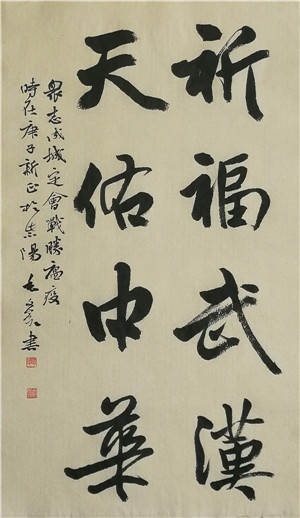 祈福武漢
天佑中華
眾志成城定會戰勝瘟疫
時在庚子新正於
陽
書